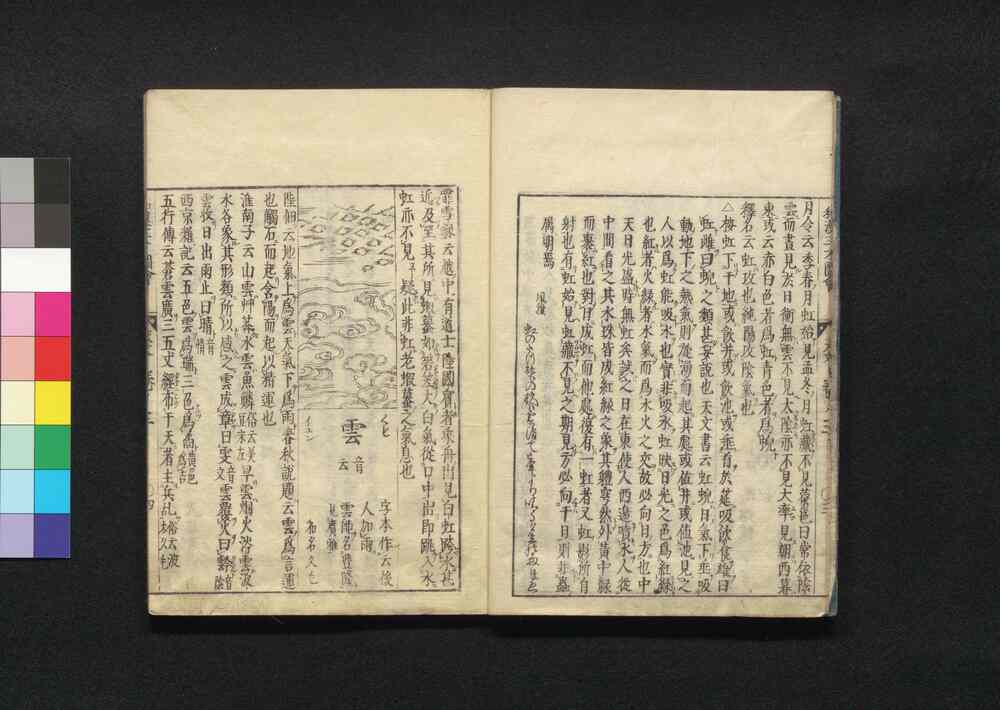 月令云季春月虹始見孟冬月虹藏不見蔡邕曰常依陰
雲而晝見於日衝無雲不見太陰亦不見大率見朝西暮
東或云赤白色者爲虹青色者爲蜺
釋名云虹攻也純陽攻陰氣也
△按虹下于地或飲井或飲池或垂首於筵吸飲食雄曰
虹雌曰蜺之類甚妄說也天文書云虹蜺日氣下垂吸
動地下之熱氣則從湧而起其尾或值井或值池見之
人以爲虹能吸水也實非吸水虹映日光之色爲紅綠
也紅者火綠者水氣而爲水火之交故必向日方也中
天日光盛時無虹矣試之日在東使人西邊噴水人從
中間看之其水珠皆成紅綠之象其體穿然外黃中綠
而裏紅也對月成虹而他處復有一虹者又虹影所自
射也有虹始見虹藏不見之期見方必向于日則非蟲
屬明焉
風雅
霏雪錄云越中有道士陸國賓者乘舟出見白虹跨水甚
近及至其所見蝦蟇如箬笠大白氣從口中出即跳入水
虹亦不見了疑此非虹老蝦蟇之氣息也
くも
雲
音
云
イユン
字本作云後
人加雨
雲師名豐隆
見廣雅
和名久毛
陸佃云地氣上爲雲天氣下爲雨春秋說題云雲爲言運
也觸石而起含陽而起以精運也
淮南子云山雲艸莽水雲魚鱗旱雲烟火涔雲波
水各象其形類所以感之雲成章曰雯雲覆日曰黔
雲收日出雨止曰晴
西京雜記云五色雲爲瑞三色爲矞
五行傳云蒼雲廣三五丈經布于天者主兵乱